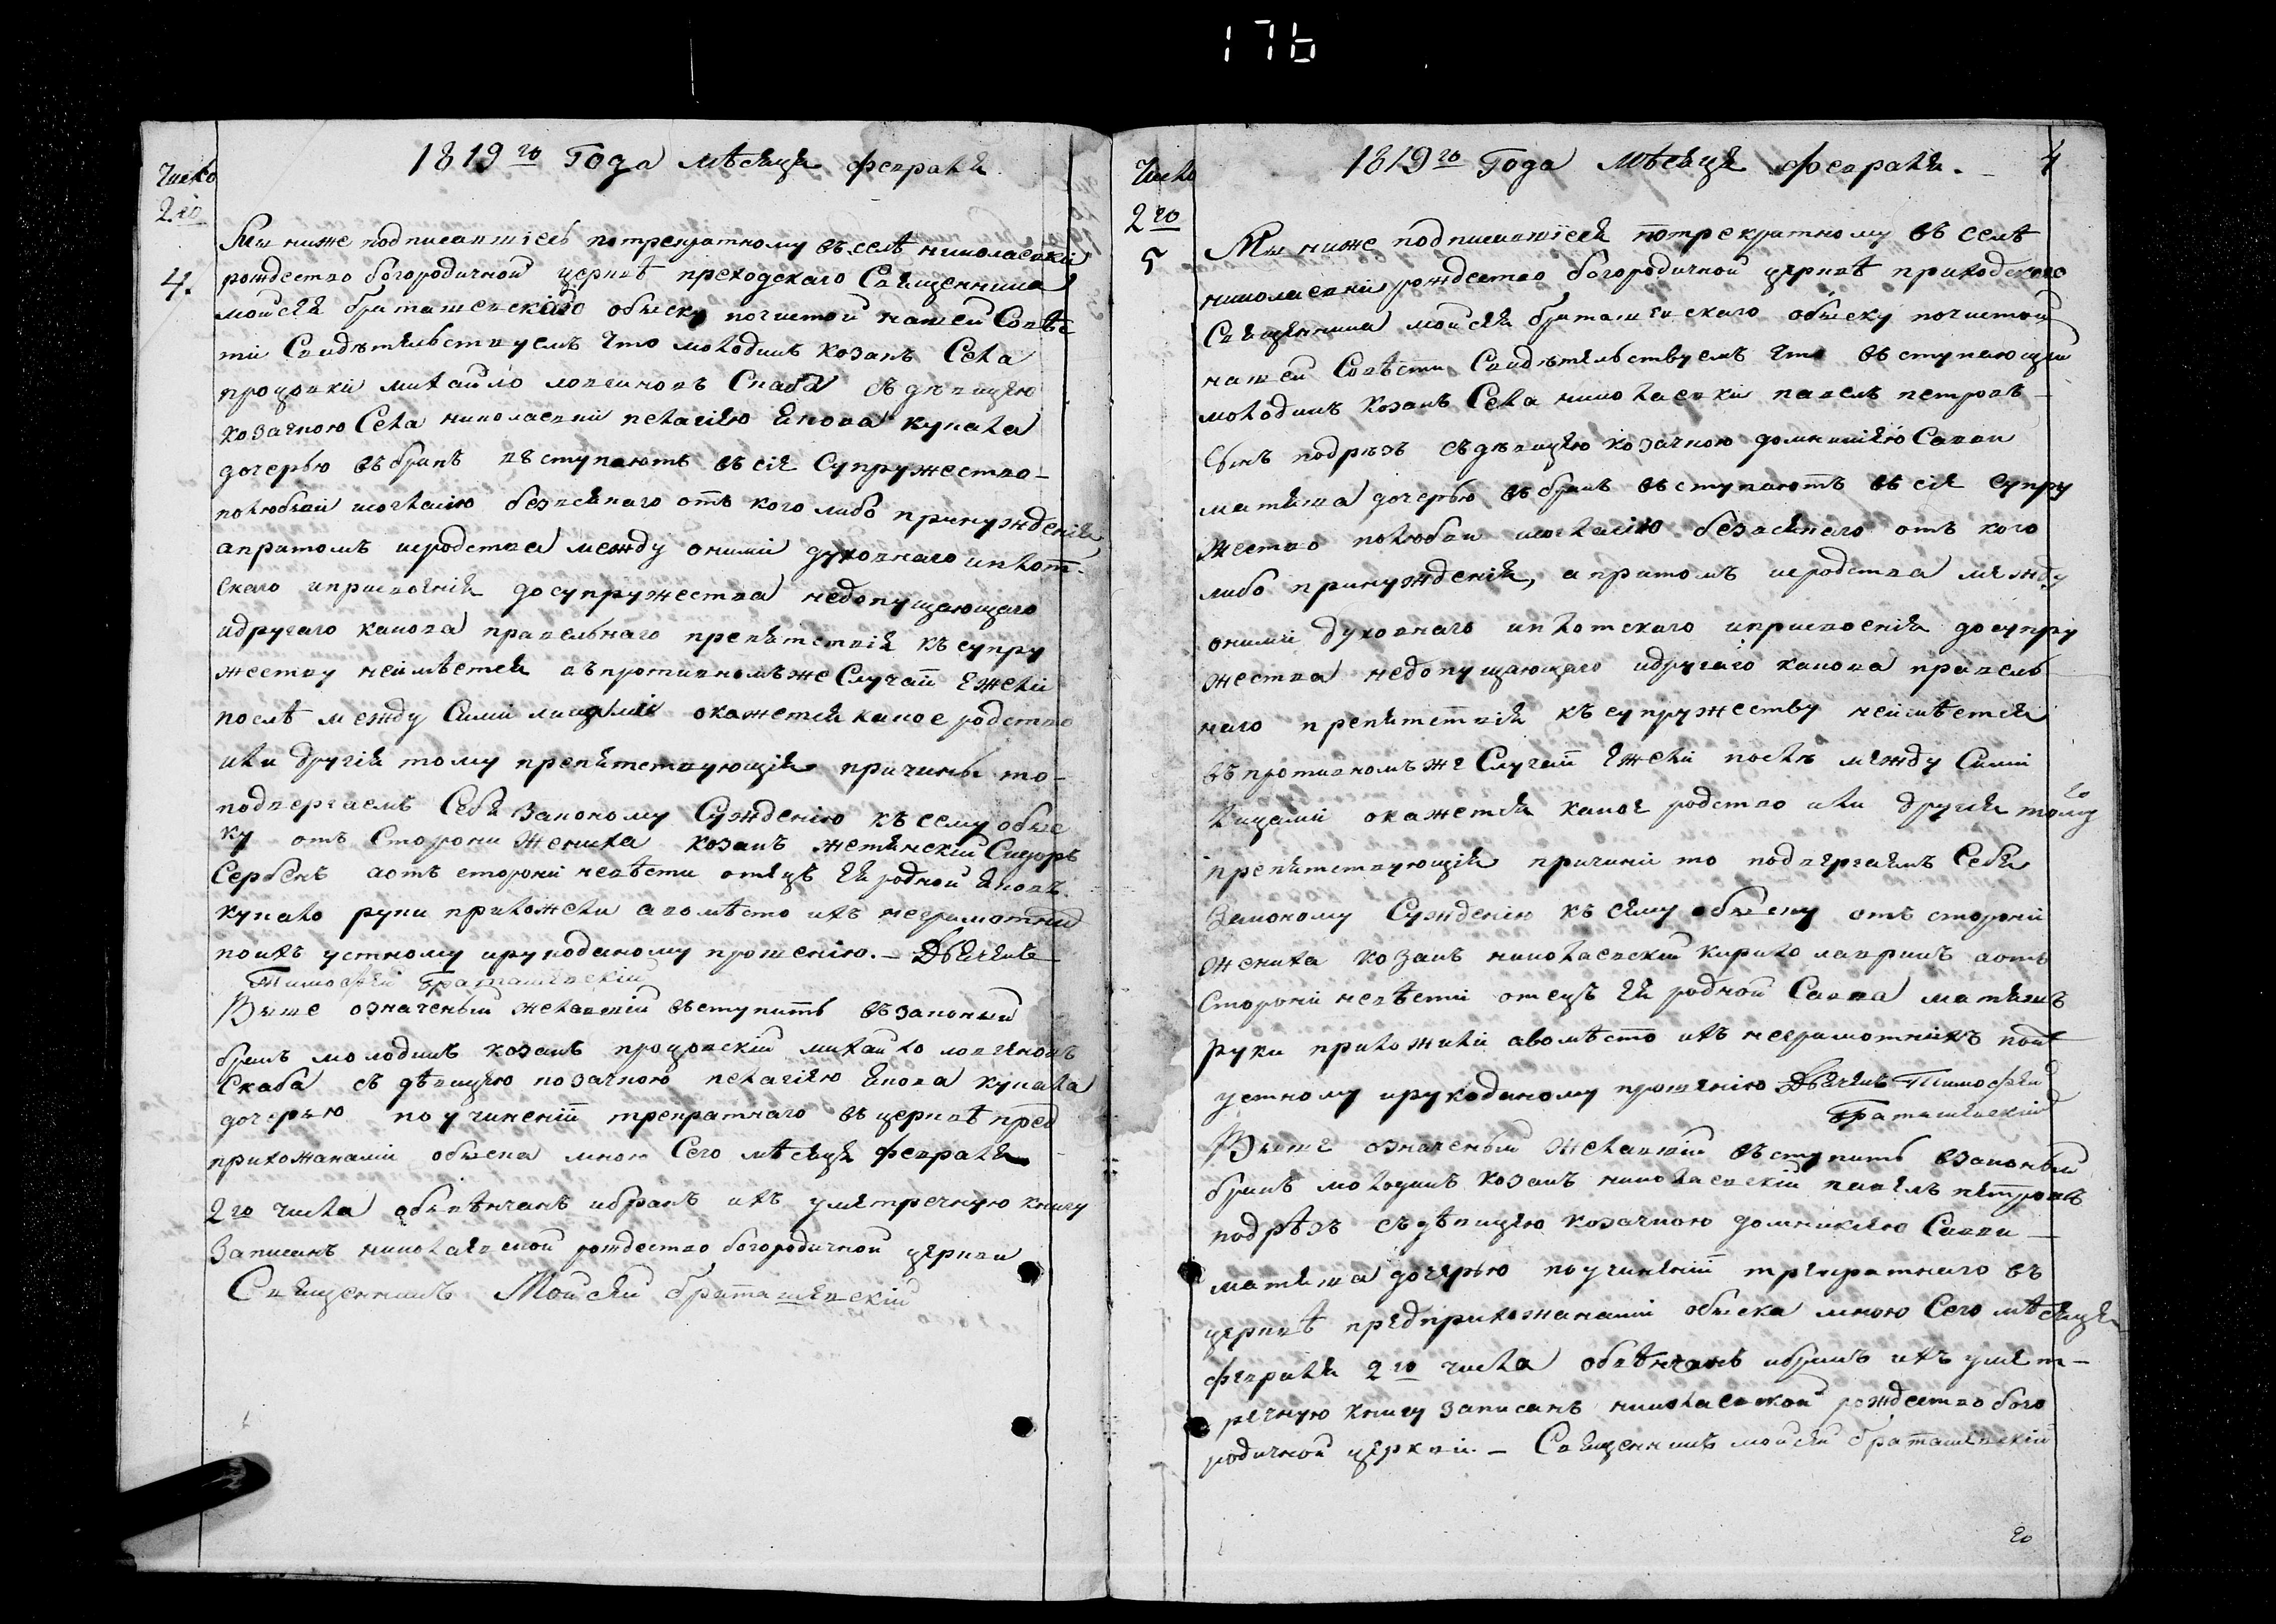 176
1819го Года мѣсяця февраля
Число
2го
4.
Мы ниже подписавшіесь потрекратному въ селѣ николаевки
рождество богородичной церквѣ преходскаго Священника
мойсея браташевского обыску почистой нашей Совѣс
ти Свидѣтельствуемъ что молодикъ козакъ Села
процовки михайло логвиновъ Скаба съ дѣвицею
козачкою Села николаевки пелагією якова купала
дочерью въ бракъ въступаютъ въ сіе Супружество-
полюбви исогласію безвсякаго отъ кого либо принужденія
апритомъ иеродства между оними духовнаго иплот-
скаго иприсвоенія досупружества недопущающаго
идругаго какова правельнаго препятствія къ супру
жеству неимѣется въ противномъ же Случаѣ ежели
послѣ между Сими лицами окажется какое родство
или другія тому препятствующія причины то-
подвергаемъ Себя Законому Сужденію къ сему обыс
ку отъ Стороны жениха козакъ Сидоръ
Сербенъ аотъ стороны невѣсти отецъ ей родной яковъ
купало руки приложели авомѣсто ихъ неграмотнихъ
по ихъ устному ирукоданому прошенію.- Дьячекъ
Тимофей Браташевскій
Выше означеный желавшій въступить въ законый
бракъ молодикъ козакъ процовскій михайло логвиновъ
Скаба съ дѣвицею козачкою пелагіею якова купала
дочерью по учиненіи трекратнаго въ церквѣ пред
прихожанами обыска мною Сего мѣсяця февраля
2го числа обвѣнчанъ ибракъ ихъ уметречную книгу
Записанъ николаевской рождество богородичной церкви
Священникъ Мойсей браташевскій
1819го Года мѣсяця февраля.- 4
Число
2го
5
Мы ниже подписавшіеся потрекратному въ селѣ
николаевки рождество богородичной церквѣ приходского
Священника мойсея браташевскаго обыску почистой
нашей Совѣсти Свидѣтельствуемъ что въступающій
молодикъ козакъ Села николаевки павелъ петровъ-
Сынъ подрѣзъ съ дѣвицею козачкою домникіею Савви
матяша дочерью въ бракъ въступаютъ въ сіе супру
жество полюбви исогласію безвсякаго отъ кого
либо принужденія, апритомъ иеродства между
оними духовнаго иплотскаго иприсвоенія досупру
жества недопущающаго идругаго какова правель
наго препятствія къ супружеству неимѣется
въ противномъ же Случаѣ ежели послѣ между Сими
лицами окажется какое родство или другія тому
препятствующія причини то подвергаемъ Себя
Законому Сужденію къ сему обыску отъ стороны
жениха козакъ николаевскій кирило лавринъ аотъ
Стороны невѣсти отецъ ей родной Савва матяшъ
руки приложили авомѣсто ихъ неграмотнихъ поих
устному ирукоданому прошенію Дьячекъ Тимофей
Браташевскій
Выше означеный желавшій въступить взаконый
бракъ молодикъ козакъ николаевскій павелъ петровъ
подрѣзъ съ дѣвицею козачкою домникіею Савви-
матяша дочерью поучиненіи трекратнаго въ
церквѣ предприхожанами обыска мною Сего мѣсяця
февраля 2го числа обвѣнчанъ ибракъ ихъ умет-
речную книгу записанъ николаевской рождество бого
родичной церкви.- Священникъ мойсей браташевскій